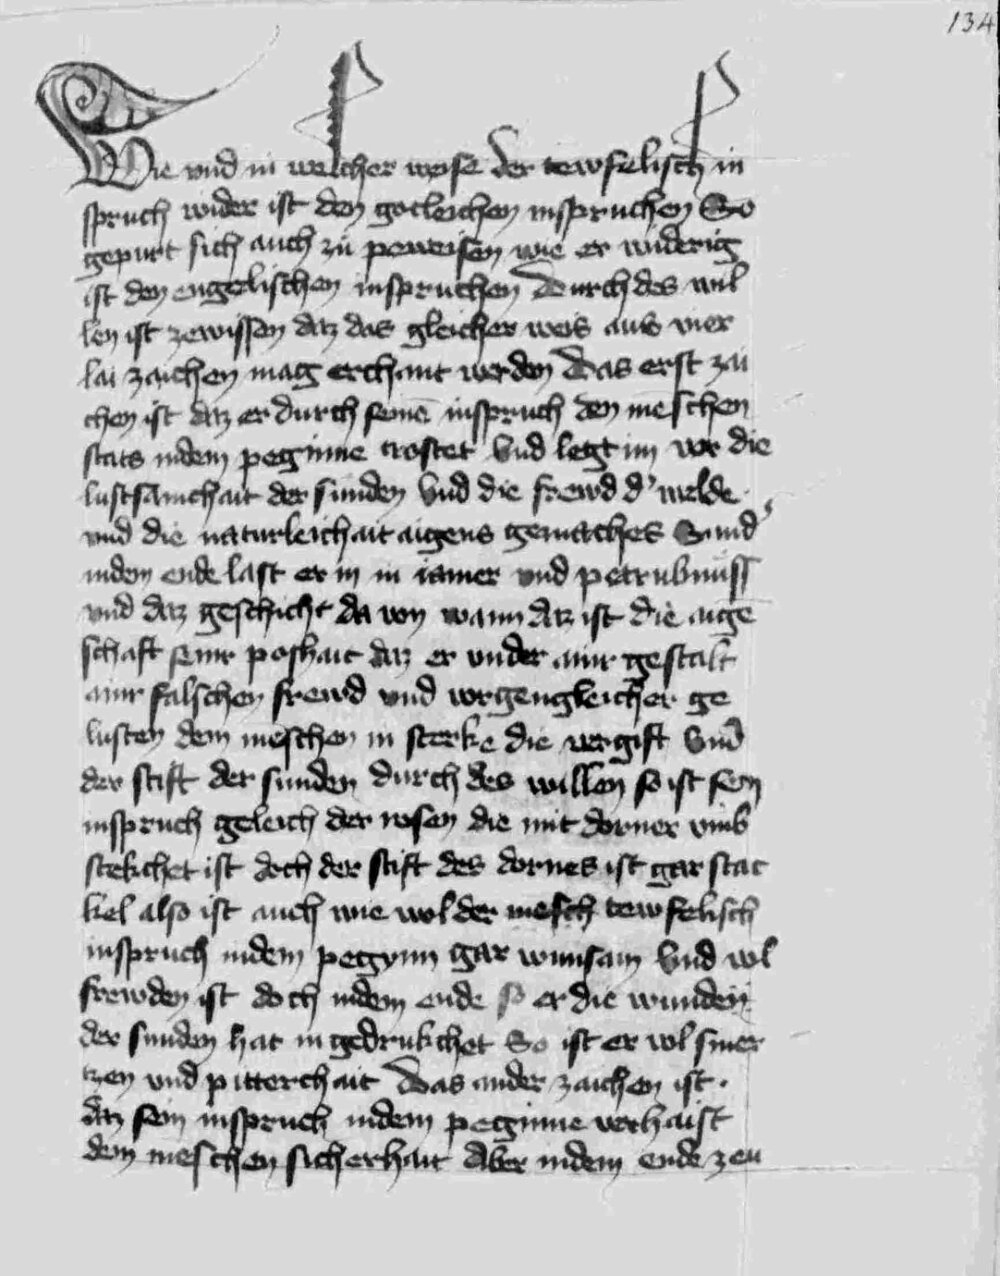 134
Wie vnd in welcher weise der tewfelisch in
spruch wider ist den gotleichen inspruchen So
gepurt sich auch zu peweisen wie er widerig
ist den engelischen inspruchen Durch des wil
len ist zewissen daz das gleicher weis aus vier
lai zaichen mag erchant werden Das erst zai
chen ist daz er durch seinē inspruch den mēschen
stats indem peginne trostet Vnd legt im vor die
lustsamchait der sunden Vnd die frewd d' welde
vnd die naturleichait aigens gemaches Sund'
indem ende last er in in iamer vnd petrubnuss
vnd daz geschicht da von wann daz ist die aigē
schaft seinr poshait daz er vnder ainr gestalt
ainr falschen frewd vnd vorgengleicher ge
lusten dem meschen in sterke die vergift Vnd
der stift der sunden durch des willen so ist sein
inspruch geleich der rosen die mit dorner vmb
stekchet ist doch der stift des dornes ist gar stac
kel also ist auch wie wol der mesch tewfelisch
inspruch indem pegynn gar wunsam Vnd vol
frewden ist doch indem ende so er die wunden
der sunden hat in gedrukchet So ist er vol smer
tzen vnd pitterchait Das ander zaichen ist
daz sein inspruch indem peginne verhaist
dem meschen sicherhait Aber indem ende zeu